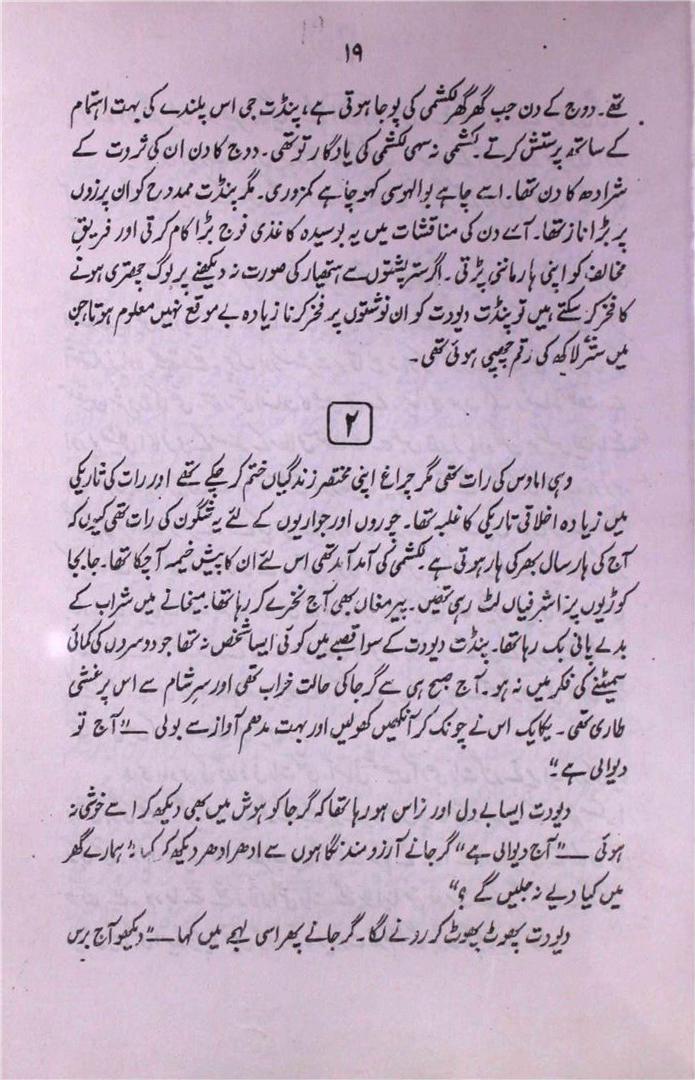 ۱۹
تھے۔ دوج کے دن جب گھر گھر لکشمی کی پوجا ہوتی ہے، پنڈت جی اس پلندے کی بہت اہتمام
کے ساتھ پرستش کرتے۔ لکشمی نہ سہی لکشمی کی یادگار تو تھی۔ دوج کا دن ان کی ثروت کے
شرادھ کا دن تھا۔ اسے چاہے بوالہوسی کہو چاہے کمزوری۔ مگر پنڈت ممدوح کو ان پرزوں
پر بڑا ناز تھا۔ آئے دن کی مناقشات میں یہ بوسیدہ کاغذی فوج بڑا کام کرتی اور فریق
مخالف کو اپنی ہار ماننی پڑتی۔ اگر ستر پشتوں سے ہتھیار کی صورت نہ دیکھنے پر لوگ چھتری ہونے
کا فخر کر سکتے ہیں تو پنڈت دیودت کو ان نوشتوں پر فخر کرنا زیادہ بے موقع نہیں معلوم ہوتا جن
میں ستّر لاکھ کی رقم چھپی ہوئی تھی۔
۲
وہی اماوس کی رات تھی مگر چراغ اپنی مختصر زندگیاں ختم کر چکے تھے اور رات کی تاریکی
میں زیادہ اخلاقی تاریکی کا غلبہ تھا۔ چوروں اور جواریوں کے لئے یہ شگون کی رات تھی کیوں کہ
آج کی ہار سال بھر کی ہار ہوتی ہے لکشمی کی آمد آمد تھی اس لئے ان کا پیش خیمہ آ چکا تھا۔ جا بجا
کوڑیوں پر اشرفیاں لٹ رہی تھیں۔ پیر مغاں بھی آج نخرے کر رہا تھا۔ میخانے میں شراب کے
بدلے پانی بک رہا تھا۔ پنڈت دیودت کے سوا قصبے میں کوئی ایسا شخص نہ تھا جو دوسروں کی کمائی
سمیٹنے کی فکر میں نہ ہو۔ آج صبح ہی سے گرجا کی حالت خراب تھی اور سر شام سے اس پر غشی
طاری تھی۔ یکایک اس نے چونک کر آنکھیں کھولیں اور بہت مدھم آواز سے بولی ــــ "آج تو
دیوالی ہے۔"
دیودت ایسا بے دل اور نراس ہو رہا تھا کہ گرجا کو ہوش میں بھی دیکھ کر اسے خوشی نہ
ہوئی ــــ "آج دیوالی ہے" گرجا نے آرزو مند نگاہوں سے ادھر ادھر دیکھ کر کہا "ہمارے گھر
میں کیا دیے نہ جلیں گے ؟"
دیودت پھوٹ پھوٹ کر رونے لگا۔ گرجا نے پھر اسی لہجے میں کہا ــــ "دیکھو آج برس